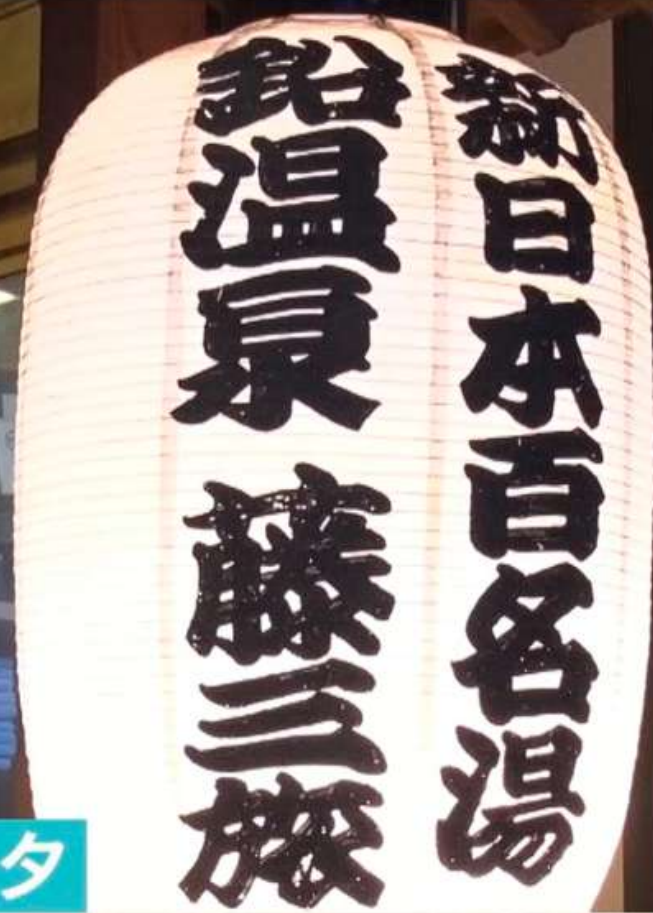 新日本百名湯
鉛温泉 藤三旅
タ